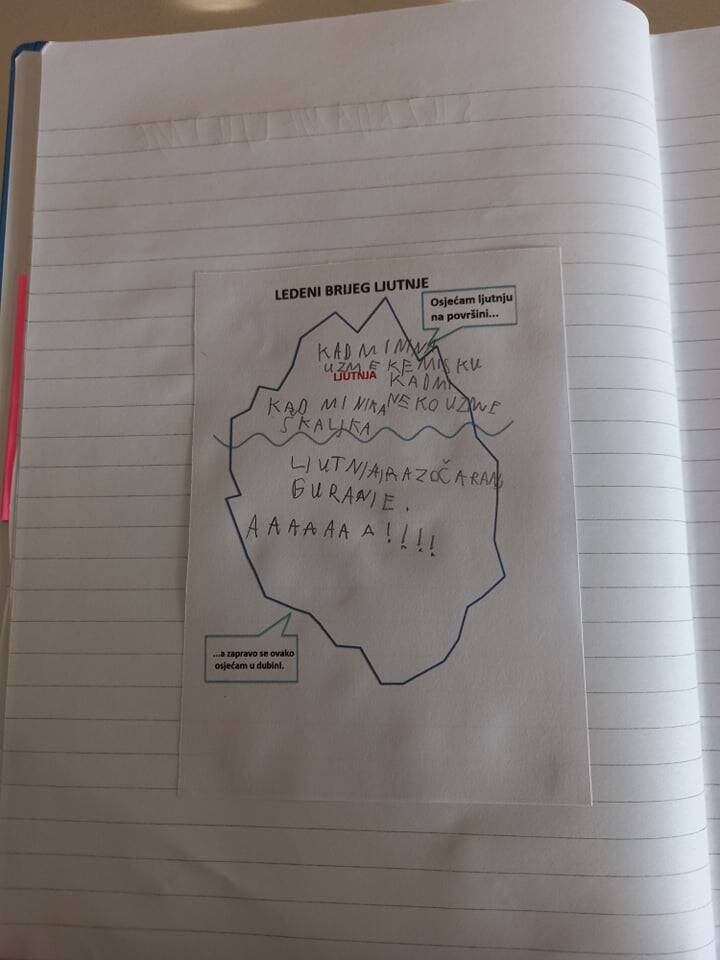 LEDENI BRIJEG LJUTNJE
Osjećam ljutnju
na površini...
KAD MI NINA
UZME KEMISKU
LJUTNJA
KADMI
KAD MI NIKA NEKO UZME
ŠKALJKA
LJUTNJA, RAZOČARAN,
GURANJE.
AAAAAAA!!!!
...a zapravo se ovako
osjećam u dubini.